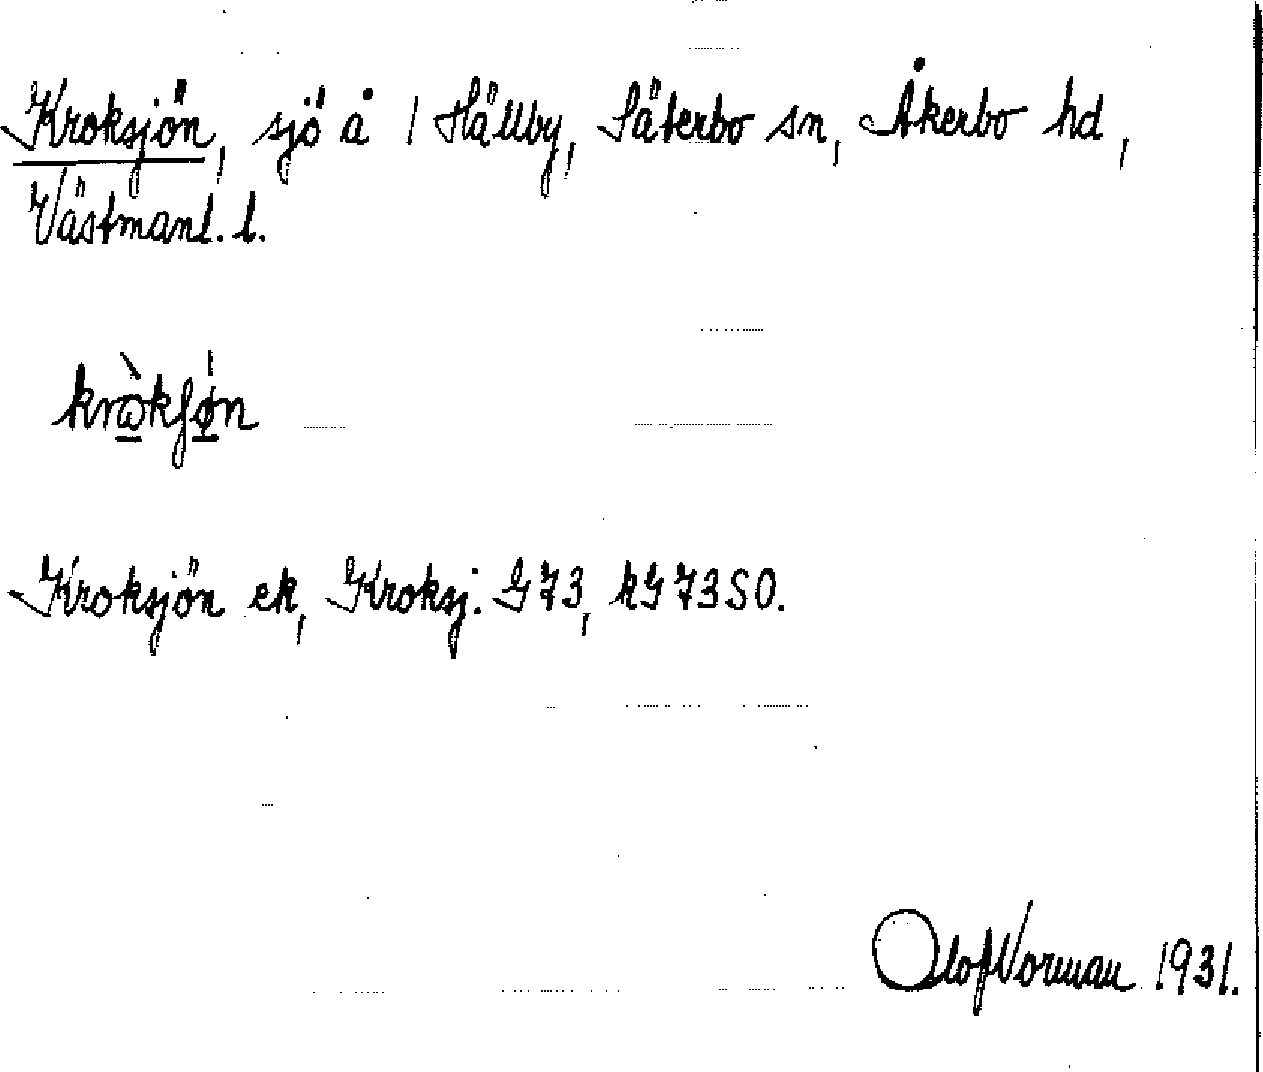 Kroksjön, sjö å 1 Hällby, Säterbo sn, Åkerbo hd,
Västmanl. l.
Kroksjön ek, Kroksj. G73, kG73SO.
Olof Norman 1931.